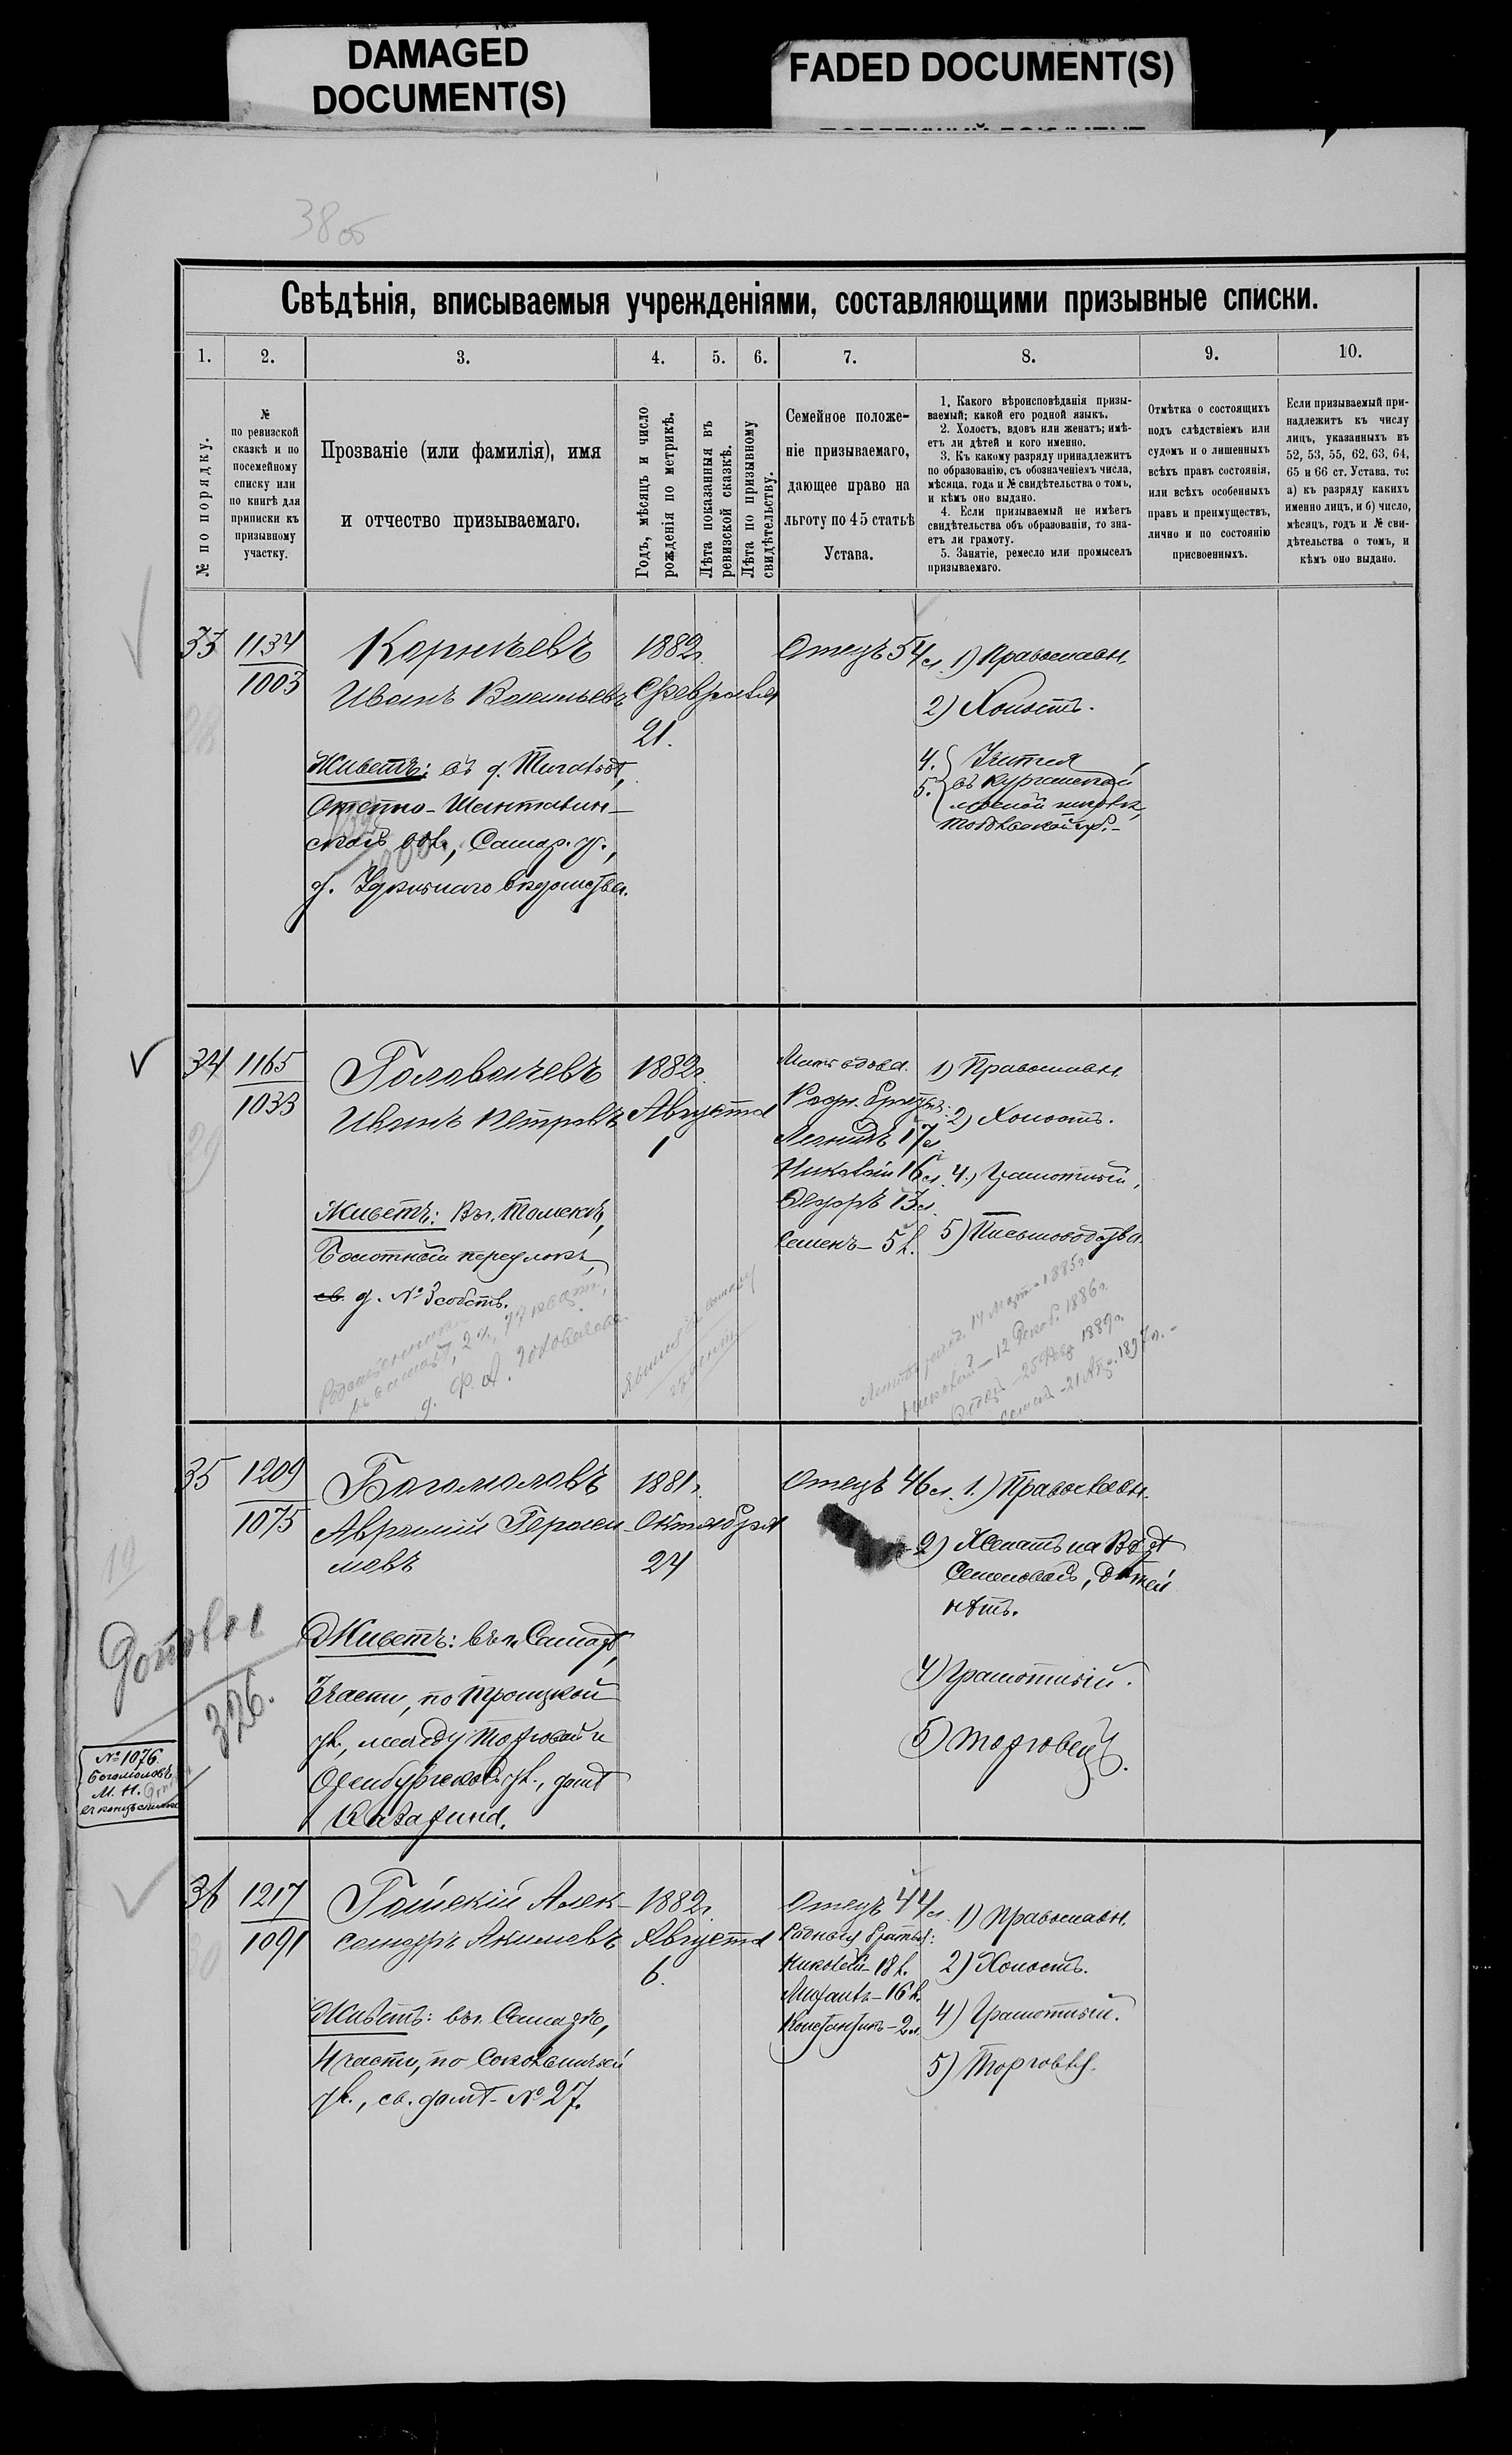 DAMAGED
DOCUMENT(S)
FADED DOCUMENT(S)
38 об
Свѣдѣнія, вписываемыя учрежденіями, составляющими призывные списки.
1. 2. 3. 4. 5. 6. 7. 8. 9. 10.
№ по порядку.
№
по ревизской
сказкѣ и по
посемейному
списку или
по книгѣ для
приписки къ
призывному
участку.
Прозваніе (или фамилія), имя
и отчество призываемаго.
Годъ, мѣсяцъ и число
рожденія по метрикѣ.
Лѣта показанныя въ
ревизской сказкѣ.
Лѣта по призывному
свидѣтельству.
Семейное положе-
ніе призываемаго,
дающее право на
льготу по 45 статьѣ
Устава.
1. Какого вѣроисповѣданія призы-
ваемый; какой его родной языкъ.
2. Холостъ, вдовъ или женатъ; имѣ-
етъ ли дѣтей и кого именно.
3. Къ какому разряду принадлежитъ
по образованію, съ обозначеніемъ числа,
мѣсяца, года и № свидѣтельства о томъ,
и кѣмъ оно выдано.
4. Если призываемый не имѣетъ
свидѣтельства объ образованіи, то зна-
етъ ли грамоту.
5. Занятіе, ремесло или промыселъ
призываемаго.
Отмѣтка о состоящихъ
подъ слѣдствіемъ или
судомъ и о лишенныхъ
всѣхъ правъ состоянія,
или всѣхъ особенныхъ
правъ и преимуществъ,
лично и по состоянію
присвоенныхъ.
Если призываемый при-
надлежитъ къ числу
лицъ, указанныхъ въ
52, 53, 55, 62, 63, 64,
65 и 66 ст. Устава, то:
а) къ разряду какихъ
именно лицъ, и б) число,
мѣсяцъ, годъ и № сви-
дѣтельства о томъ, и
кѣмъ оно выдано.
33
1134
1003
Корнѣевъ
Иванъ Васильевъ
Живетъ: въ д.
Самар. у.,
1882 г.
Февраля
21.
Отецъ 54 л.
1) Православн.
2) Холостъ.
4.
5.
въ Курганской
лѣсной школѣ,
Тобольской губ.
34
1165
1033
29
Головачевъ
Иванъ Петровъ
Живетъ: въ г. Томскѣ,
Болотный переулокъ,
св. д. № 3 собств.
1882 г.
Августа
1
Мать вдова.
Родн. братья:
Леонидъ 17 л.
Николай 16 л.
Федоръ 13 л.
Семенъ - 5 л.
1) Православн.
2) Холостъ.
4) Грамотный.
5) Письмоводства.
д. Ф. А. Головачева
14 Март. 1885 г.
Николай - 12 Декаб. 1886 г.
1889 г.
21 Апр. 1897 г.
35
1209
1075
Богомоловъ
Аврамій Гераси-
мовъ
Живетъ: въ г. Самарѣ,
части, по Троицкой
ул., между Торговой и
Оренбургской ул., домъ
1881 г.
Октября
24
Отецъ 46 л.
1.) Православн.
2) Женатъ на
Семеновой, дѣтей
нѣтъ.
4) Грамотный.
5) Торговецъ.
19
326.
№ 1076
Богомоловъ
М. Н.
въ концѣ списка
36
1217
1091
30
Гойскій Алек-
сандръ Акимовъ
Живетъ: въ г. Самарѣ,
4 части, по Сокольничьей
ул., св. домъ - № 27.
1882 г.
Августа
6.
Отецъ 44 л.
Родные братья:
Николай - 18 л.
Михаилъ - 16 л.
Константинъ - 2 л.
1) Православн.
2) Холостъ.
4) Грамотный.
5) Торговецъ.